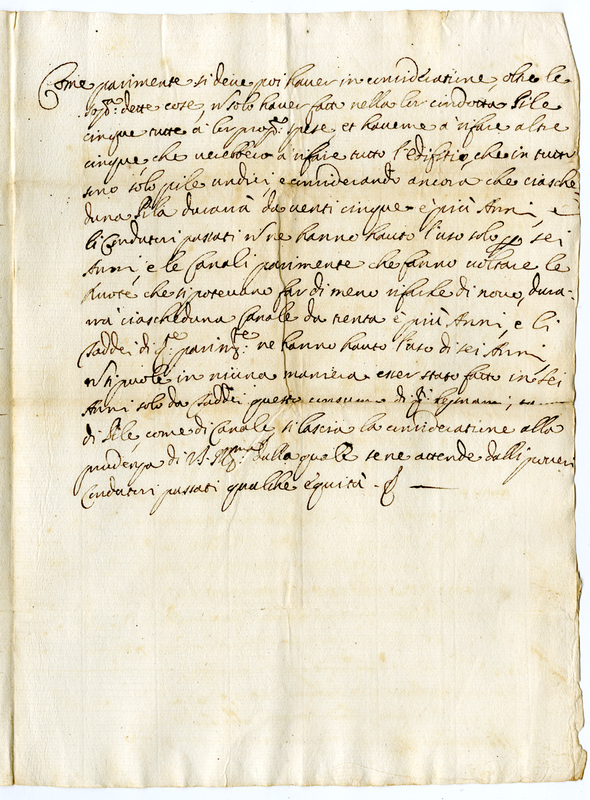 Come parimente si deve poi haver in consideratione, oltre le
sop.a dette cose, n solo haver fatto nella lor condotta Pile
cinque tutte à lor prop.e spese et haverne à rifare altre
cinque che verebbero à rifare tutto l'edifitio, che in tutto
sino solo pile undici, e considerando ancora che ciasche-
duna Pila durarà da venti cinque e più Anni, e
li Conduttori passati n ne hanno hauto l'uso solo p sei
Anni, e le Canali parimente che fanno voltare le
Ruote che si potevano far di meno rifarle di novo, dura-
rà ciascheduna Canale da trenta è più Anni, e li
Taddei di ne hanno hauto l'uso di sei Anni
n si puole in niuna maniera esser stato fatto in sei
Anni solo da Taddei questo consumo di
di Pile, come di Canale si lascia la consideratione alla
prudenza di V.S. dalla quale se ne attende dalli poveri
Conduttori passati qualche equità.